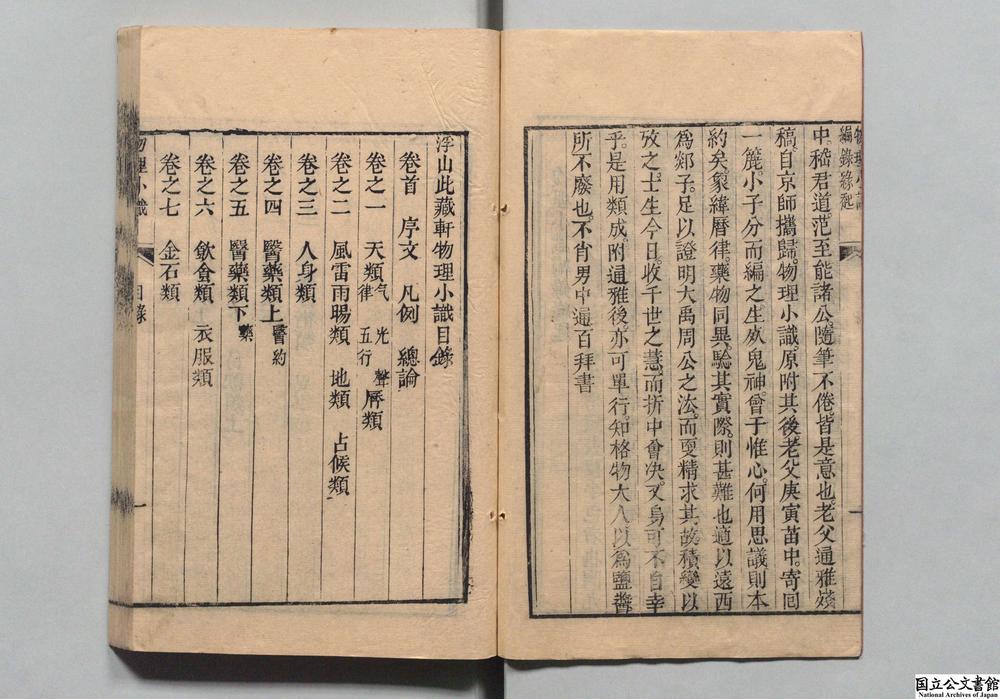 物理小識
編錄緣起
中。嵇君道。范至能諸公。隨筆不倦。皆是意也。老父通雅殘
稿。自京師攜歸。物理小識。原附其後。老父庚寅苗中。寄回
一簏。小子分而編之。生死鬼神。會于惟心。何用思議。則本
約矣。象緯曆律。藥物同異。驗其實際。則甚難也。適以遠西
為郯子。足以證明大禹周公之法。而更精求其故。積變以
攷之。士生今日。收千世之慧。而折中會決。又烏可不自幸
乎。是用類成。附通雅後。亦可單行。知格物大人。以為鹽醬
所不廢也。不肖男中通百拜書
一
浮山此藏軒物理小識目錄
卷首　序文　凡例　總論
卷之一　天類　气　光　聲　律　五行　曆類
卷之二　風雷雨暘類　地類　占候類
卷之三　人身類
卷之四　醫藥類上　醫約
卷之五　醫藥類下　藥
卷之六　飲食類　衣服類
卷之七　金石類
物理小識　目錄　一
国立公文書館
National Archives of Japan